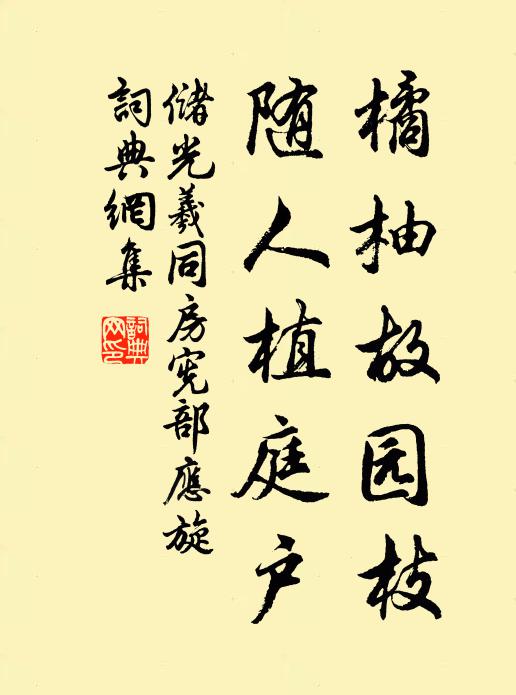 橘柚故园枝
随人植庭户
储光羲同房宪部應旋
詞典網集
詞典網印